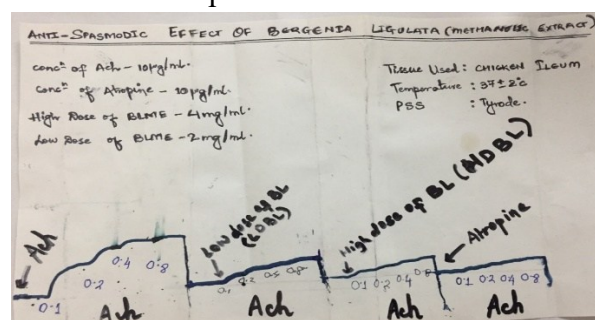 ANTI-SPASMODIC EFFECT OF BERGENIA LIGULATA (METHANOLIC EXTRACT)
concn of Ach - 10µg/ml.
Concn of Atropine - 10µg/ml.
High Dose of BLME - 4mg/ml.
Low Dose of BLME - 2mg/ml.
Tissue Used: CHICKEN ILEUM
Temperature: 37±2°c
PSS : Tyrode.
Ach
0.1 0.2 0.4 0.8
Ach
Low dose of BL (LDBL)
0.1 0.2 0.4 0.8
Ach
High dose of BL (HDBL)
0.1 0.2 0.4 0.8
Ach
Atropine
0.1 0.2 0.4 0.8
Ach